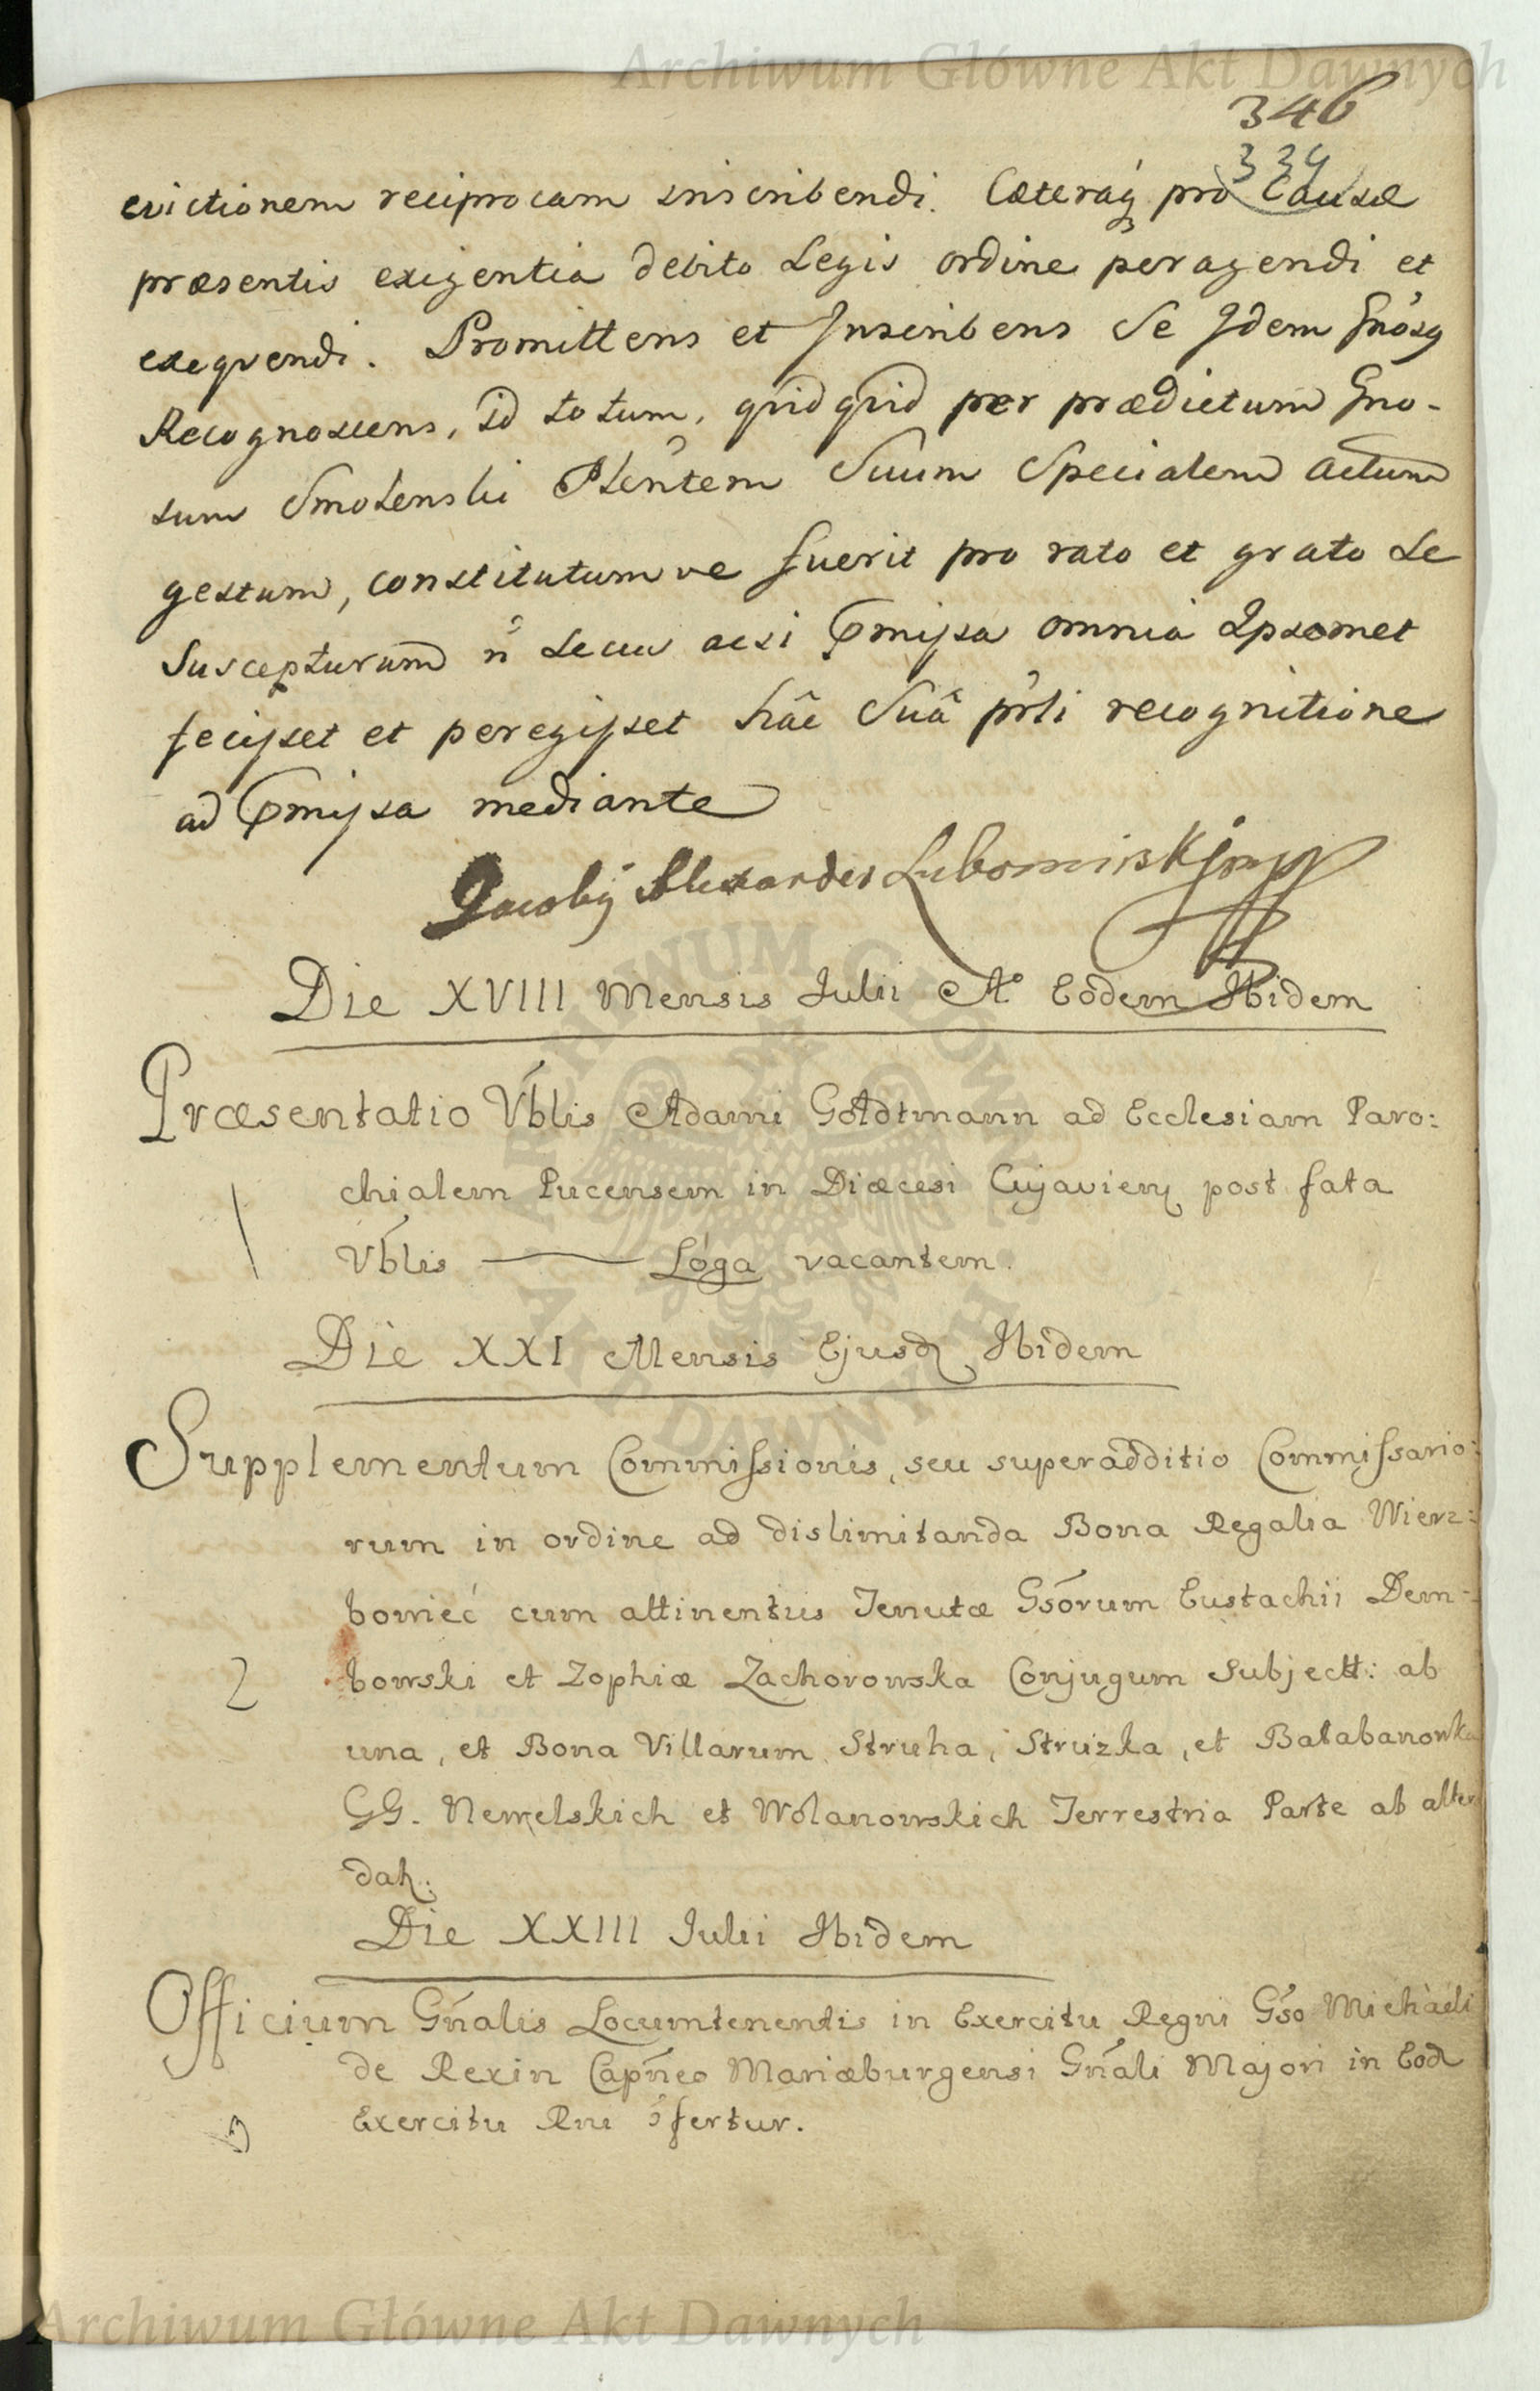 Archiwum Główne Akt Dawnych
346
334
evictionem reciprocam inscribendi. Cæteraq́ pro Causæ
præsentis exigentia debito Legis ordine peragendi et
exeqvendi. Promittens et Inscribens Se Idem
Recognoscens, id totum, qvidqvid per prædictum Gno-
sum Smolenski Plentem Suum Specialem actum
gestum, constitutumve fuerit pro rato et grato se
Suscepturum ñ secus acsi pmissa omnia Ipsemet
fecisset et peregisset hâc Suâ pr̃ti recognitione
ad pmissa mediante
Jacobq Alexander Lubomirski
Die XVIII Mensis Iulii Aº Eodem Ibidem
Præsentatio Vblis Adami Goldtmann ad Ecclesiam Paro:
chialem Pucensem in Diæcesi Cujavien post fata
1
Vblis — Loga vacantem.
Die XXI Mensis Ejusd Ibidem
Supplementum Commissionis, seu superadditio Commissario:
rum in ordine ad dislimitanda Bona Regalia Wierz:
bowieć cum attinentiis Tenutæ Gsorum Eustachii Dem-
2 bowski et Zophiæ Zachorowska Conjugum Subjectt: ab
una, et Bona Villarum Struha, Struzka, et Bałabanowka
GG. Newelskich et Wolanowskich Terrestria Parte ab alter
dat:
Die XXIII Iulii Ibidem
Officium Gńalis Locumtenentis in Exercitu Regni Gso Michaeli
de Rexin Capńeo Mariæburgensi Gńali Majori in Eod
3 Exercitu Rni fertur.
ARCHIWUM GŁÓWNE AKT DAWNYCH
Archiwum Główne Akt Dawnych